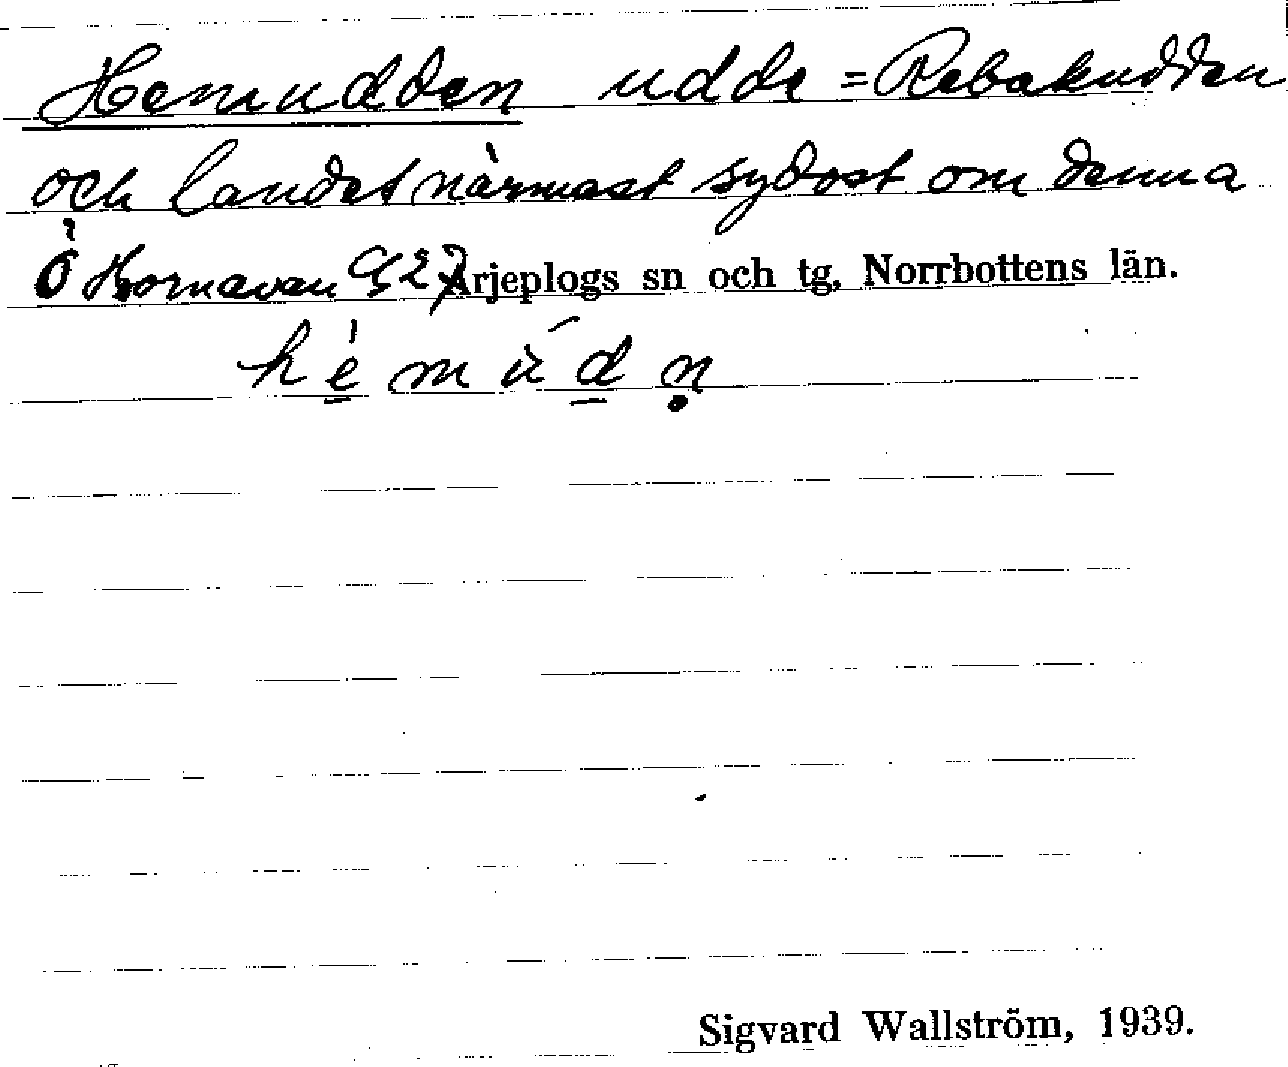 Hemudden udde = Rebakudden
och landet närmast sydost om denna
Ö Hornavan G27 Arjeplogs sn och tg, Norrbottens län.
h è m ù d n̥
Sigvard Wallström, 1939.